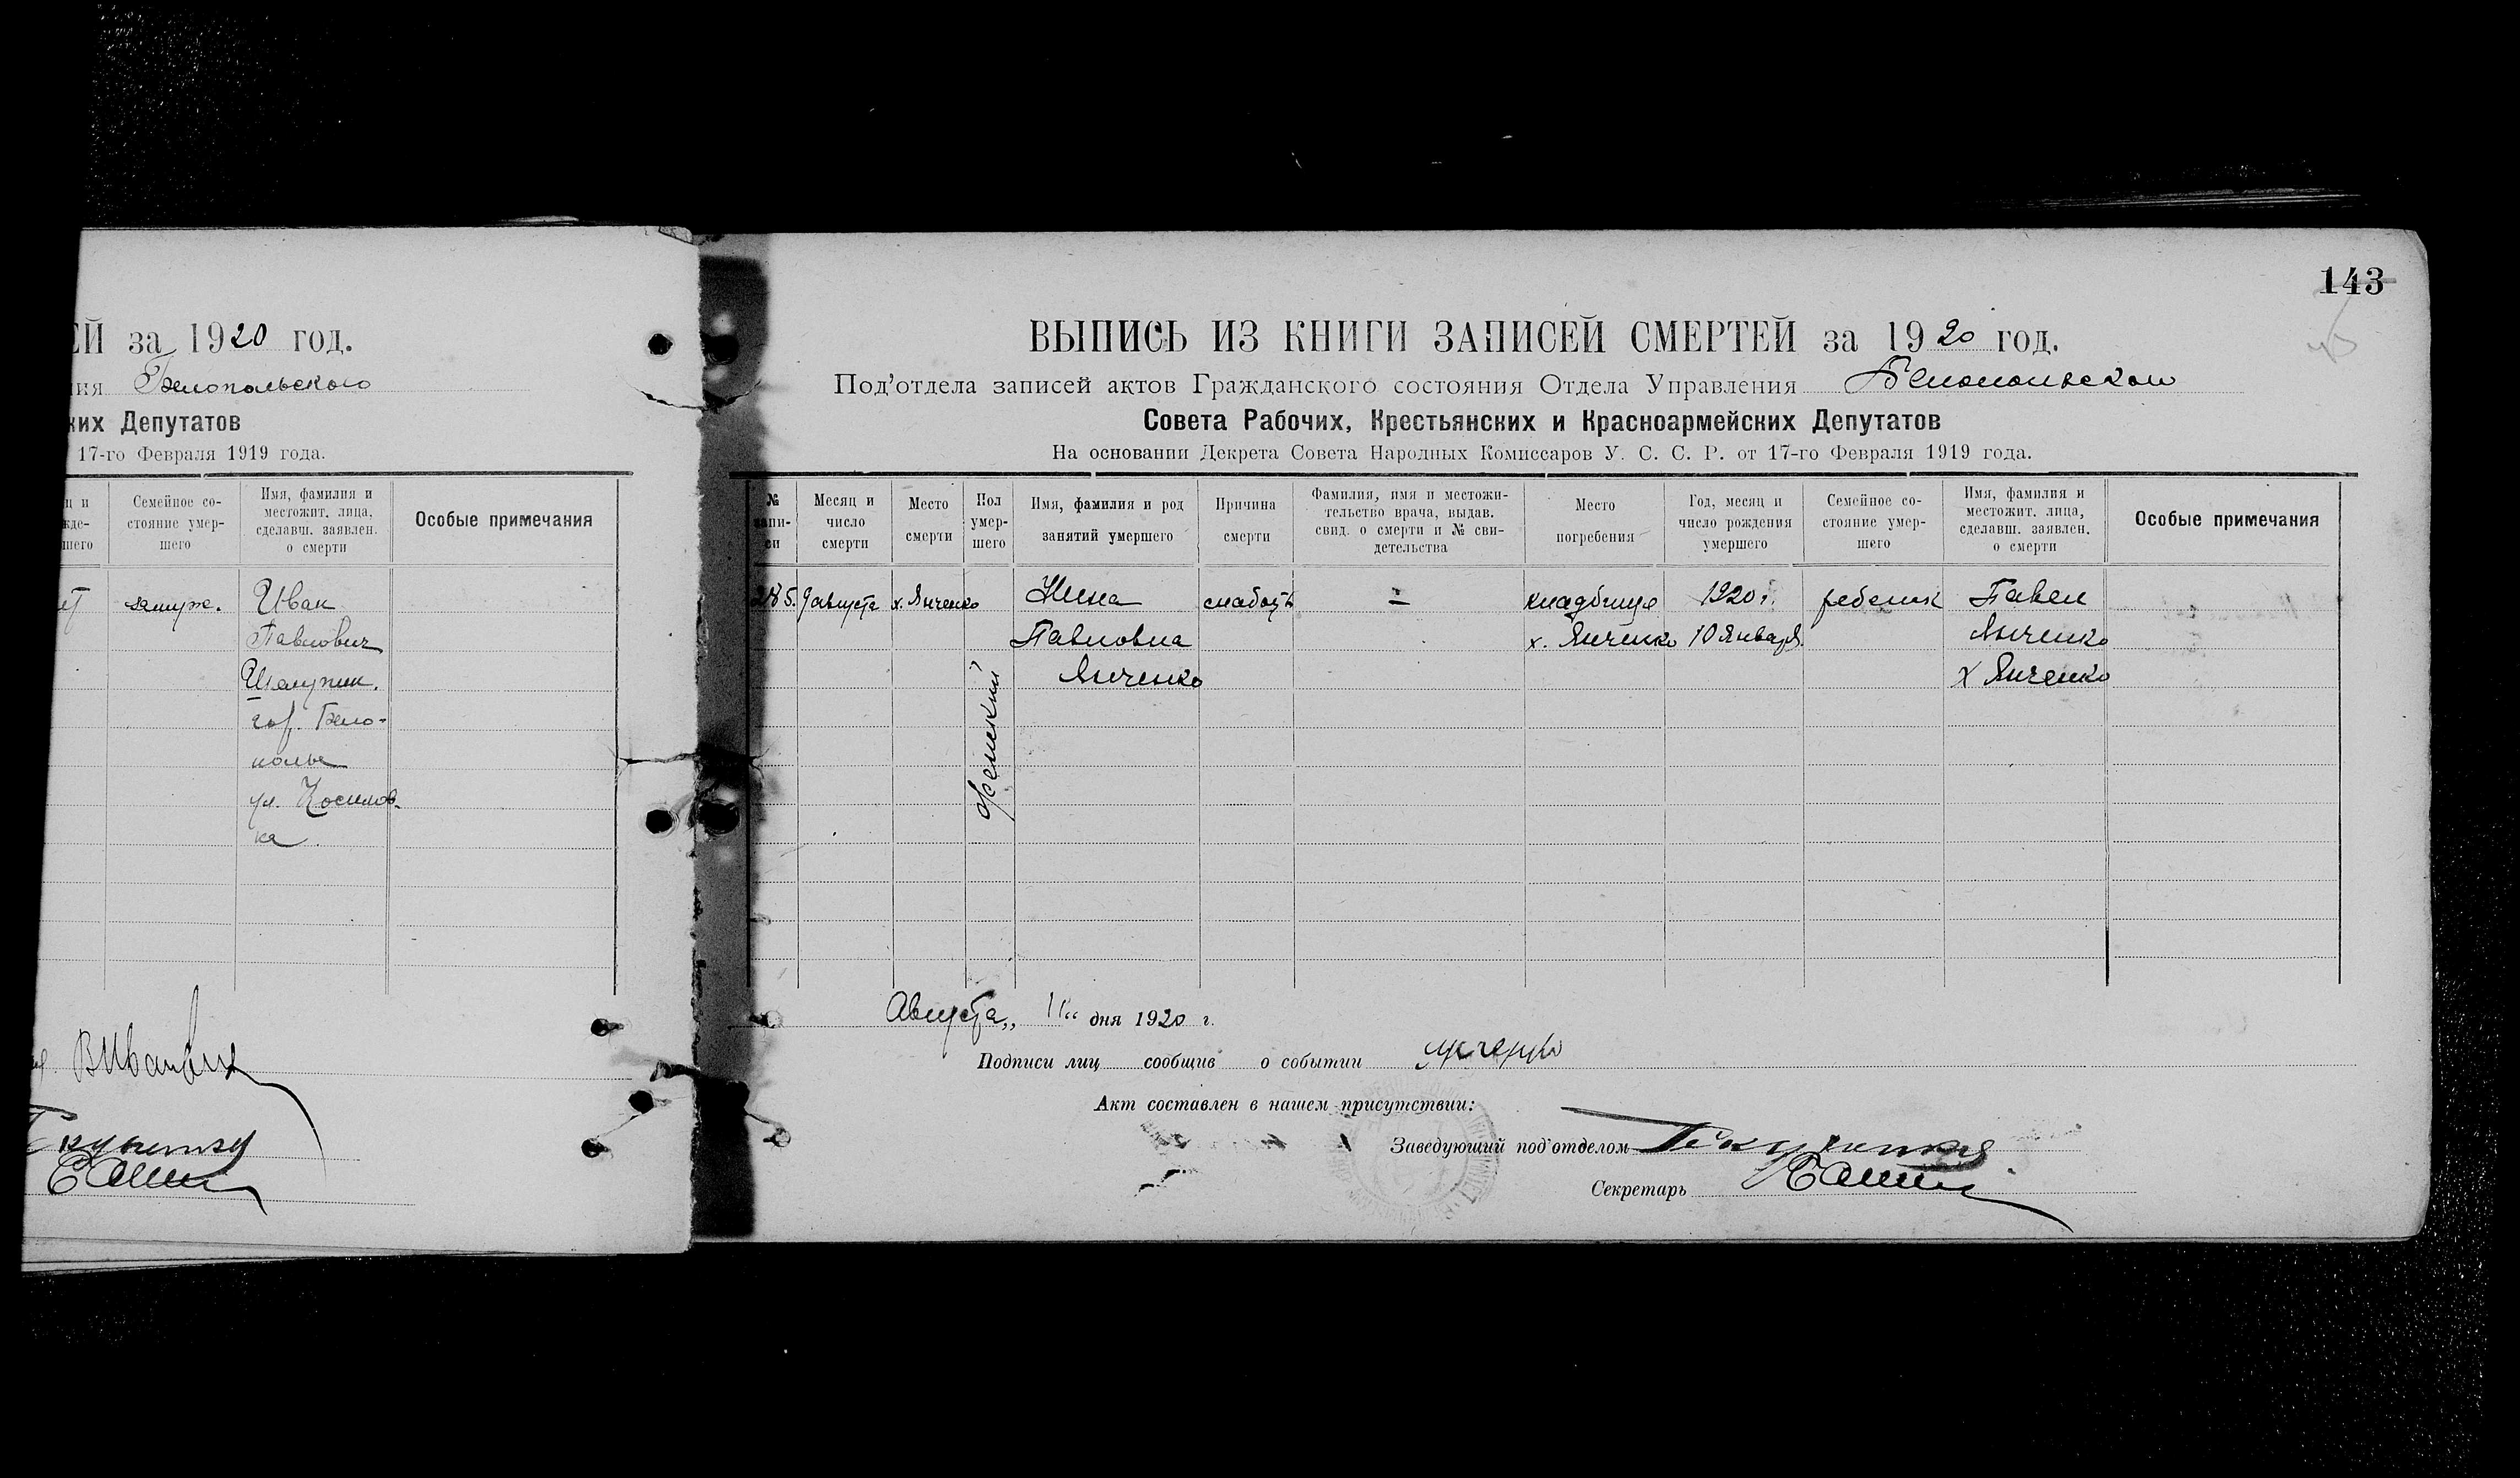 ЕЙ за 1920 год.
ия Белопольского
ких Депутатов
17-го Февраля 1919 года.
ц и
жде-
шего
Семейное со-
стояние умер-
шего
Имя, фамилия и
местожит. лица,
сделавш. заявлен.
о смерти
Особые примечания
замуж.
Иван
Павлович
Шалупин.
гор. Бело-
полье
ул.
ка
143
ВЫПИСЬ ИЗ КНИГИ ЗАПИСЕЙ СМЕРТЕЙ за 1920 год.
Под'отдела записей актов Гражданского состояния Отдела Управления Белопольского
Совета Рабочих, Крестьянских и Красноармейских Депутатов
На основании Декрета Совета Народных Комиссаров У. С. С. Р. от 17-го Февраля 1919 года.
№
запи-
си
Месяц и
число
смерти
Место
смерти
Пол
умер-
шего
Имя, фамилия и род
занятий умершего
Причина
смерти
Фамилия, имя и местожи-
тельство врача, выдав.
свид. о смерти и № сви-
детельства
Место
погребения
Год, месяц и
число рождения
умершего
Семейное со-
стояние умер-
шего
Имя, фамилия и
местожит. лица,
сделавш. заявлен.
о смерти
Особые примечания
285.
9 августа
х. Янченко
женский
Нина
Павловна
Янченко
слабость
—
кладбище
х. Янченко
1920 г.
10 Января
ребенок
Павел
Янченко
х Янченко
Августа „11“ дня 1920 г.
Подписи лиц сообщив о событии Янченко
Акт составлен в нашем присутствии:
Заведующий под'отделом
Секретарь